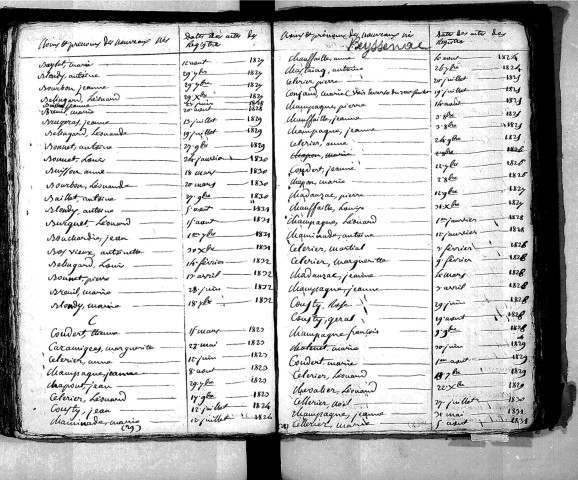 Noms et prénoms des nouveaux nés Dates des actes des Registre
Baylet, marie 1829
Blondy, antoine 29 xbre 1829
Bourbon jeanne 29 9bre 1829
Belugard, Léonard 29 Xbre 1829
1828
Breuil, marie 20 aout 1828
Brugeras, jeanne 13 juillet 1829
Belugard, Léonarde 19 juillet 1829
Bonnet, antoine 27 9bre 1829
Bonnet, Louis 24 janvier 1830
Buisson, anne 18 mars 1830
Bourbon, Léonarde 20 mars 1830
Baillot, antoine 27 9bre 1830
Blondy, antoine 5 aout 1831
Burguet, Léonard 15 aout 1831
Bouchardin, jean 1831
Bosvieux, antoinette 30 Xbre 1831
Belugard, Louis 14 février 1832
Bonnet, pierre 13 avril 1832
Breuil, marie 28 juin 1832
Blondy, marie 18 9bre 1832
C
Coudert, 15 mars 1823
Caramigeas, marguerite 27 mai 1823
Celerier, anne 12 juin 1823
Champagne, jeanne 8 aout 1823
Chapout, jean 29 9bre 1823
Celerier, Léonard 17 9bre 1823
Cousty, jean 12 juillet 1824
Chaminade, marie 12 juillet 1824
(29)
Noms et prénoms des nouveaux nés Date des actes des Registre
Beyssenac
Chauffaille, anne 10 aout 1824
Chastaing, antoine 26 9bre 1824
Celerier, pierre 20 juillet 1825
Conjaud, marie 19 juillet 1825
Champagne, pierre 16 aout 1825
Chauffaille, jeanne 3 8bre 1825
Champagne, jeanne 3 8bre 1825
Celerier, anne 24 9bre 1825
Chapon, marie
Coudert, jeanne 22 1826
Chapon, marie 2 8bre 1826
Chadanzac, pierre 12 9bre 1827
Chauffaille, Louise 31 Xbre 1827
Champagne, Léonard 1er janvier 1828
Chaminade, antoine 12 janvier 1828
Celerier, martial 3 février 1828
Celerier, marguerite 9 février 1828
Chadanzac, jeanne 10 mars 1828
Champagne, jeanne 3 avril 1828
Cousty, Rose 29 juin 1828
Cousty, geral 19 aout 1828
Champagne, françois 3 9bre 1828
Chatenet, marie 20 juin 1829
Coudert, marie 1er aout 1829
Celerier, Léonard 18 7bre 1829
Chevalier, Léonard 22 Xbre 1829
Cellerier, noël 27 juillet 1830
Champagne, jeanne 31 mai 1831
Cellerier, marie 5 aout 1831